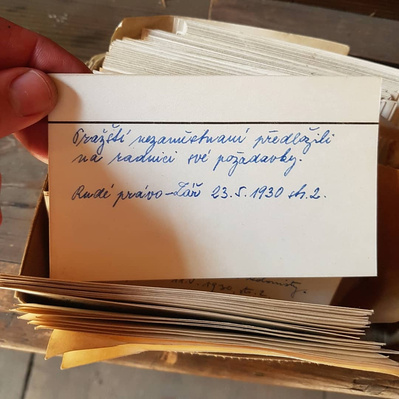 Pražští nezaměstnaní předložili
na radnici své požadavky.
Rudé právo – Zář 23.5.1930 str.2.
1930 str.2